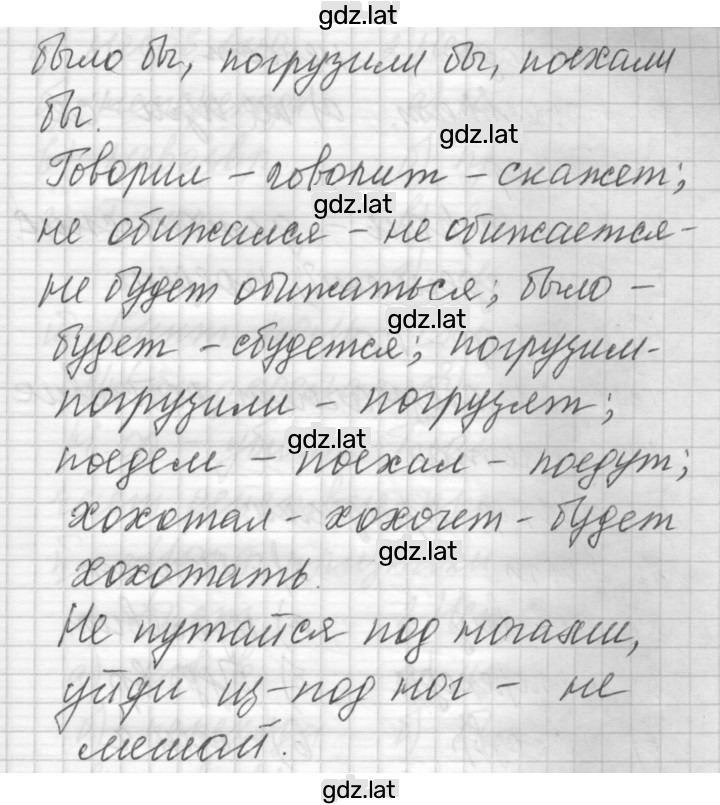 gdz.lat
было бы, погрузили бы, поехали
бы.
gdz.lat
Говорил – говорит – скажет;
gdz.lat
не обижался – не обижается –
не будет обижаться; было –
gdz.lat
будет – сбудется; погрузим –
погрузили – погрузят;
gdz.lat
поедем – поехал – поедут;
хохотал – хохочет – будет
gdz.lat
хохотать.
Не путайся под ногами,
уйди из-под ног – не
мешай.
gdz.lat